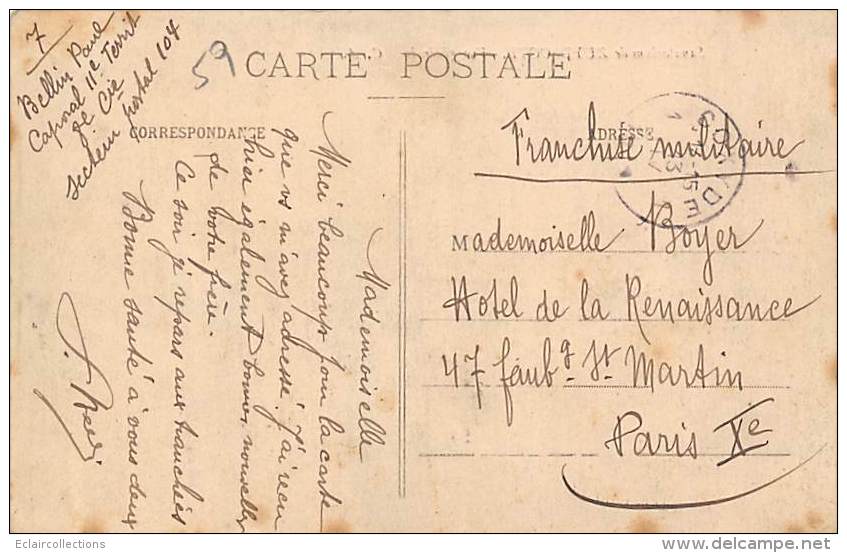 7
Bellin Paul
Caporal 11e Territ
Cie
Secteur Postal 104
59
CARTE POSTALE
CORRESPONDANCE
ADRESSE
Mademoiselle
Merci beaucoup pour la carte
que vs m'avez adressé. J'ai reçu
hier également bonnes nouvelles
de votre frère.
Ce soir je repars aux tranchées
Bonne santé à vous deux
Franchise militaire
Mademoiselle Boyer
Hotel de la Renaissance
47 faubg St Martin
Paris Xe
Eclaircollections
www.delcampe.net